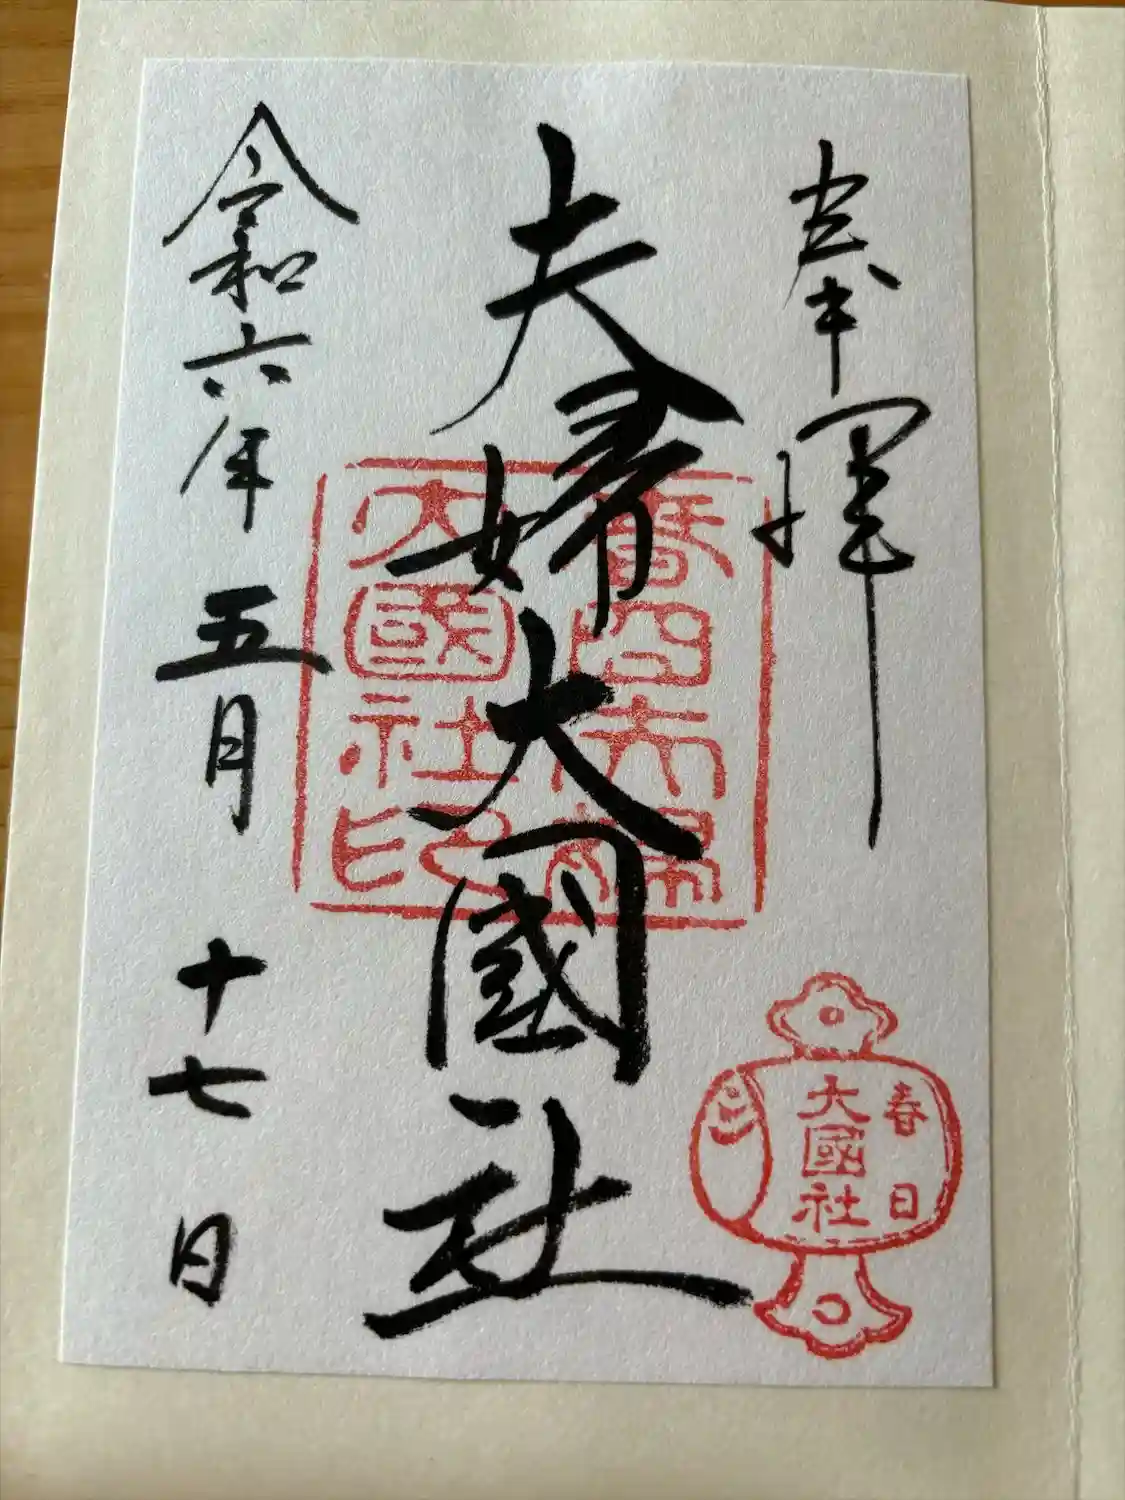 奉拝
夫婦大國社
令和六年五月十七日
春日
大國社
大國社印